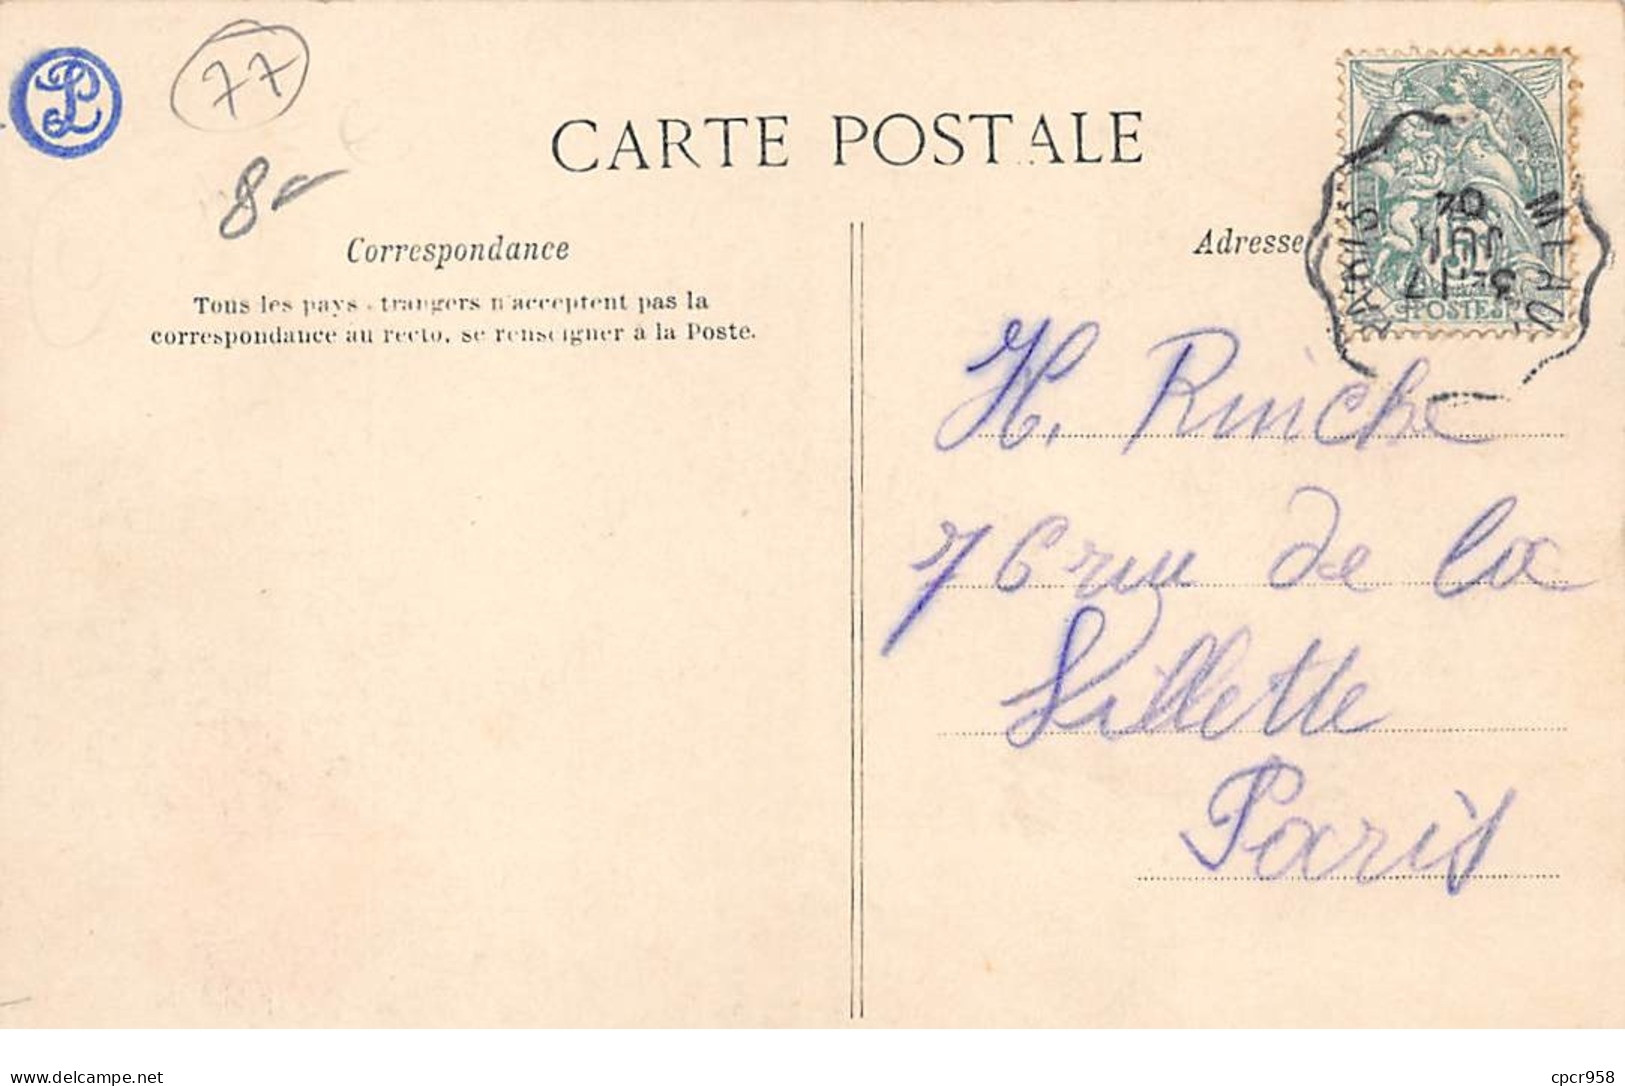 77
8-
CARTE POSTALE
Correspondance
Tous les pays étrangers n'acceptent pas la
correspondance au recto, se renseigner à la Poste.
Adresse
PARIS
MEAU
3E
17
JUIL
04
5
POSTES
H. Rinche
76 rue de la
Villette
Paris
delcampe.net
cpcr958